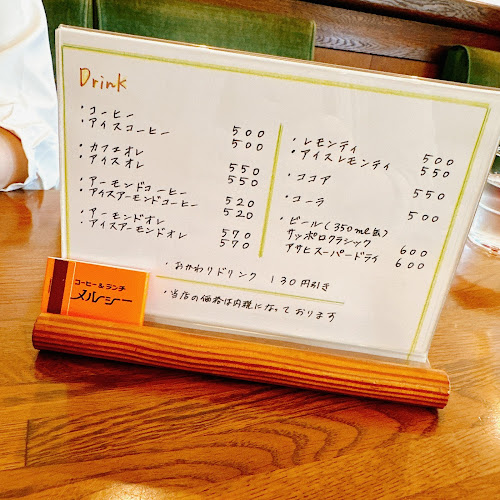 Drink
・コーヒー 500
・アイスコーヒー 500
・カフェオレ 550
・アイスオレ 550
・アーモンドコーヒー 520
・アイスアーモンドコーヒー 520
・アーモンドオレ 570
・アイスアーモンドオレ 570
・レモンティ 500
・アイスレモンティ 550
・ココア 550
・コーラ 500
・ビール(350ml缶)
サッポロクラシック 600
アサヒスーパードライ 600
・おかわりドリンク 130円引き
・当店の価格は内税になっております
コーヒー&ランチ
メルシー